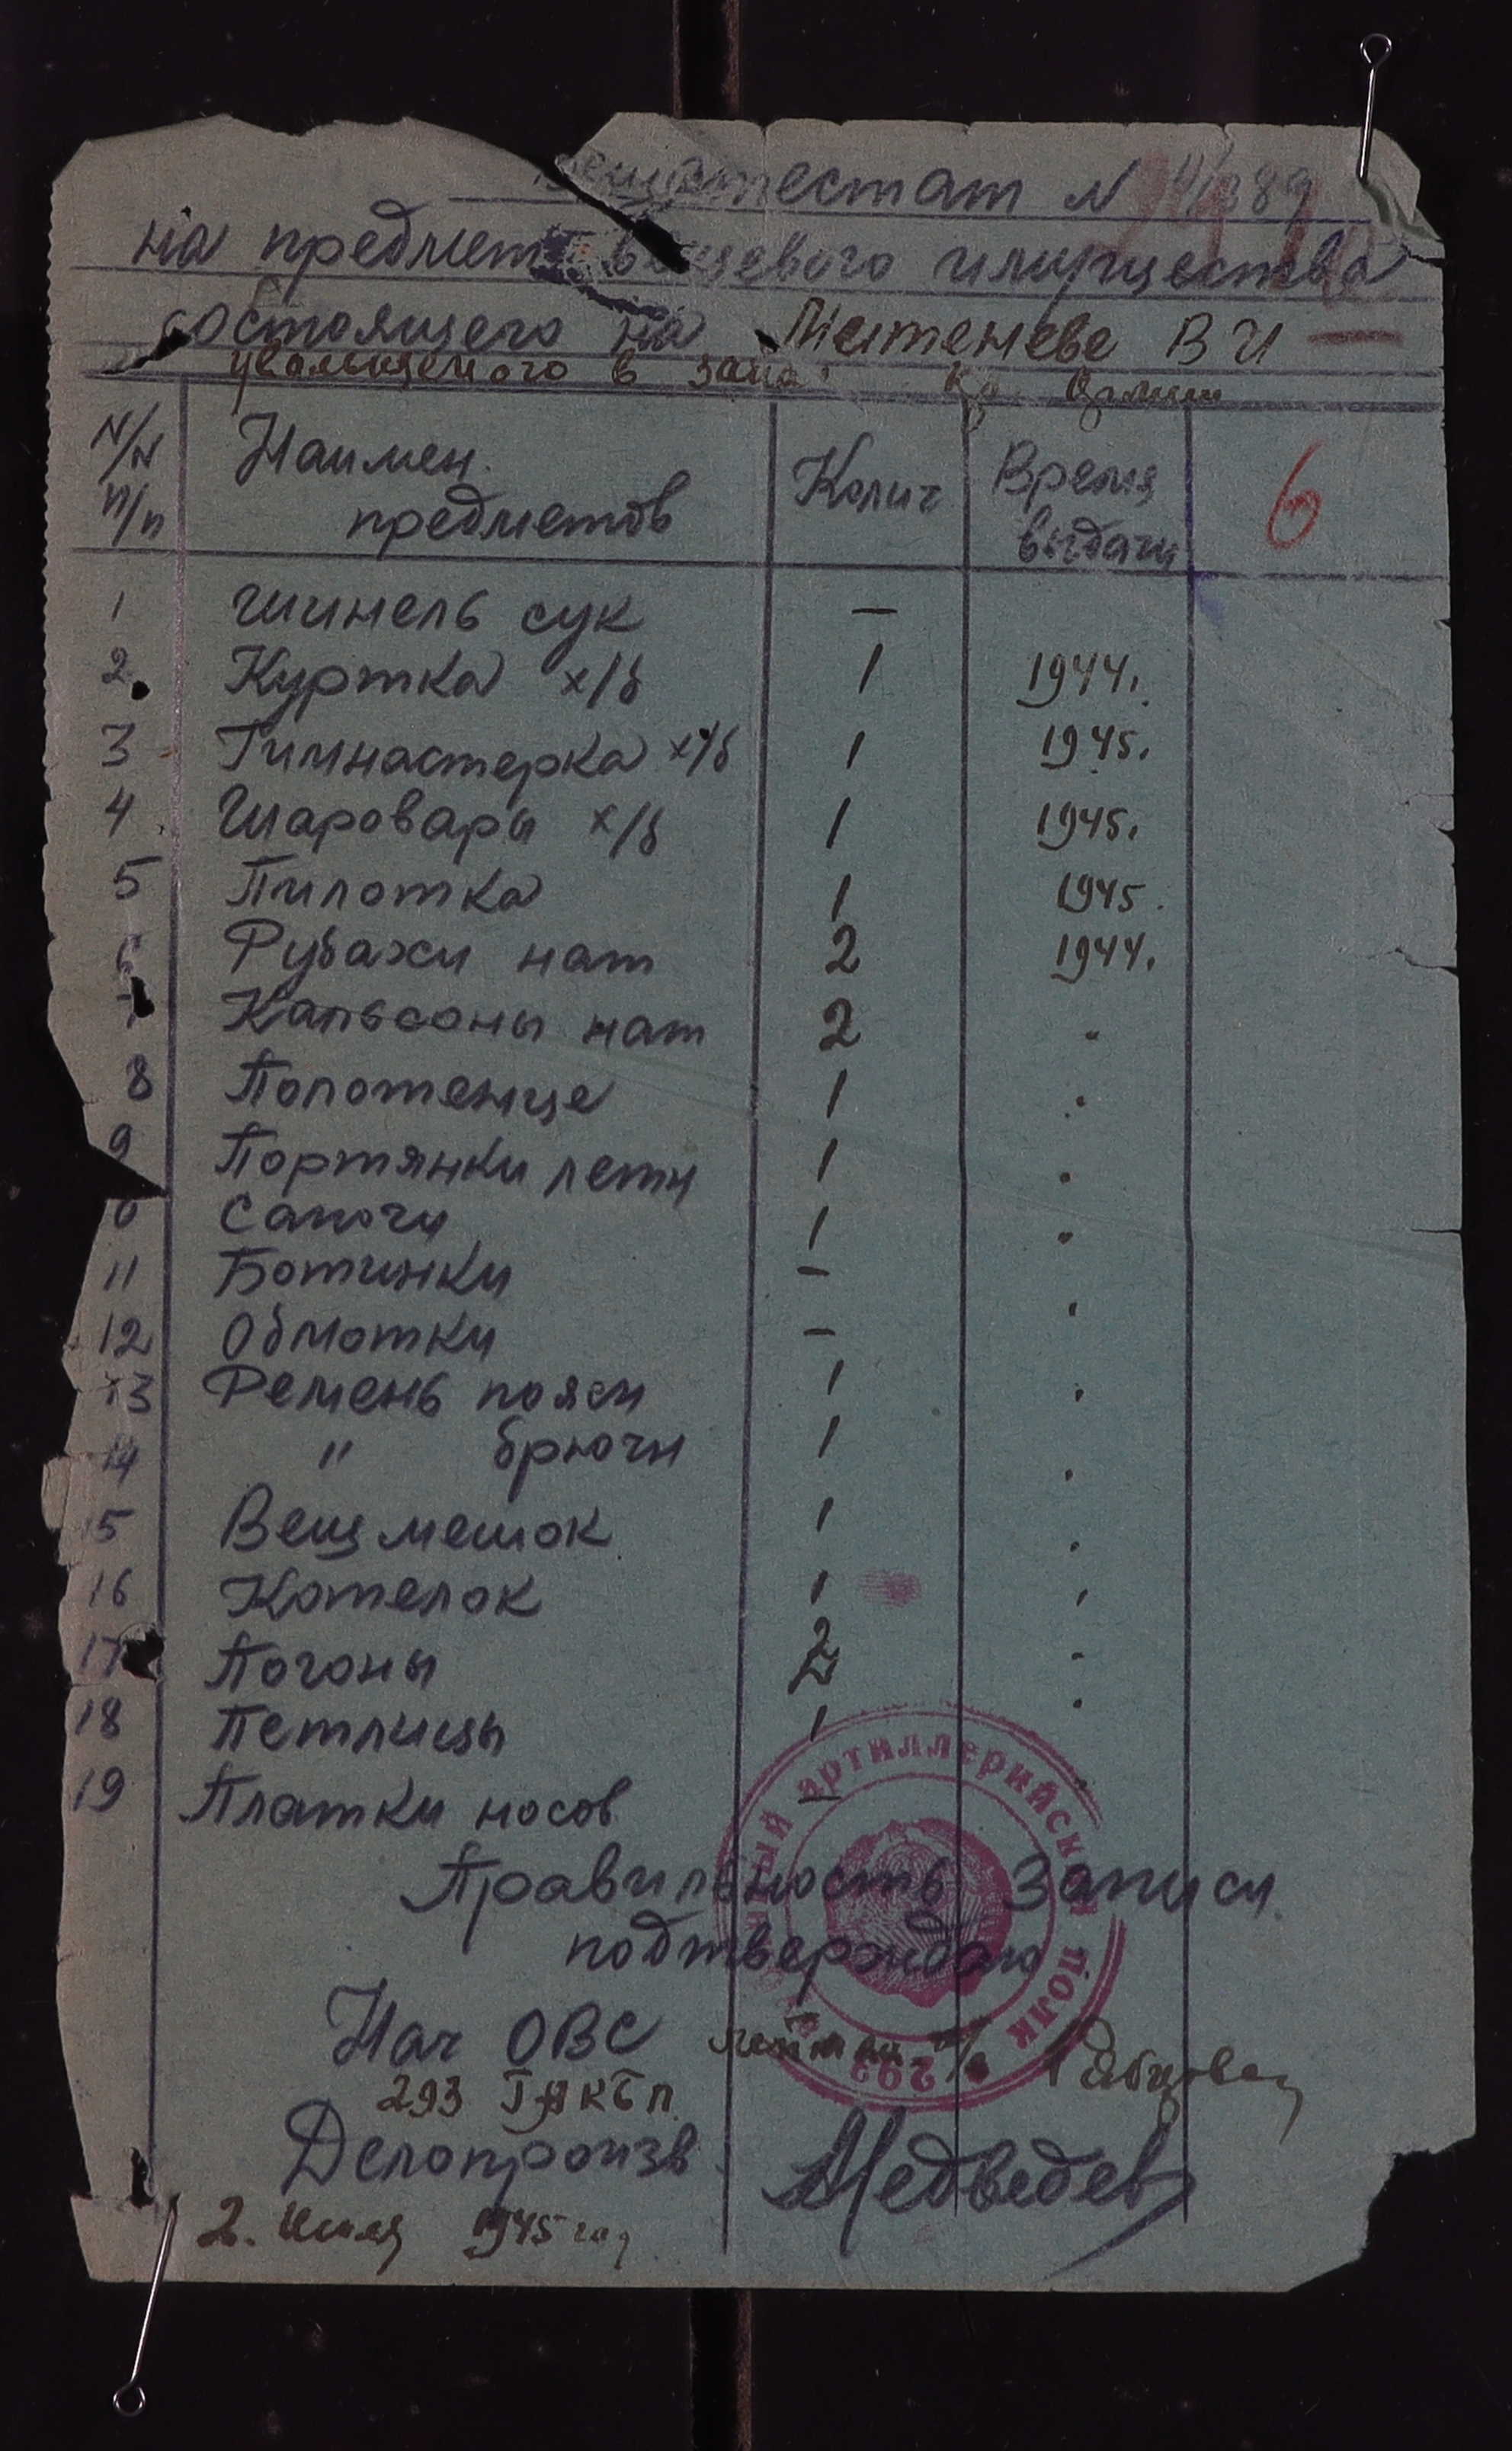 Вещаттестат N
на предмет вещевого имущества
состоящего на В И
увольняемого в запас
N/N п/п Наимен. предметов Колич Время выдачи 6
1 Шинель сук —
2. Куртка х/б 1 1944.
3 Гимнастерка х/б 1 1945.
4 Шаровары х/б 1 1945.
5 Пилотка 1 1945.
6 Рубахи нат 2 1944.
7 Кальсоны нат 2 "
8 Полотенце 1 "
9 Портянки летн 1 "
0 Сапоги 1 "
11 Ботинки —
12 Обмотки — "
13 Ремень поясн 1 "
14 " брючн 1 "
15 Вещмешок 1 "
16 Котелок 1 "
17 Погоны 2 "
18 Петлицы 1 "
19 Платки носов —
Правильность записи
подтверждаю
Нач ОВС
293
Делопроизв. Медведев
2. Июля 1945 год
артиллерийский полк
293